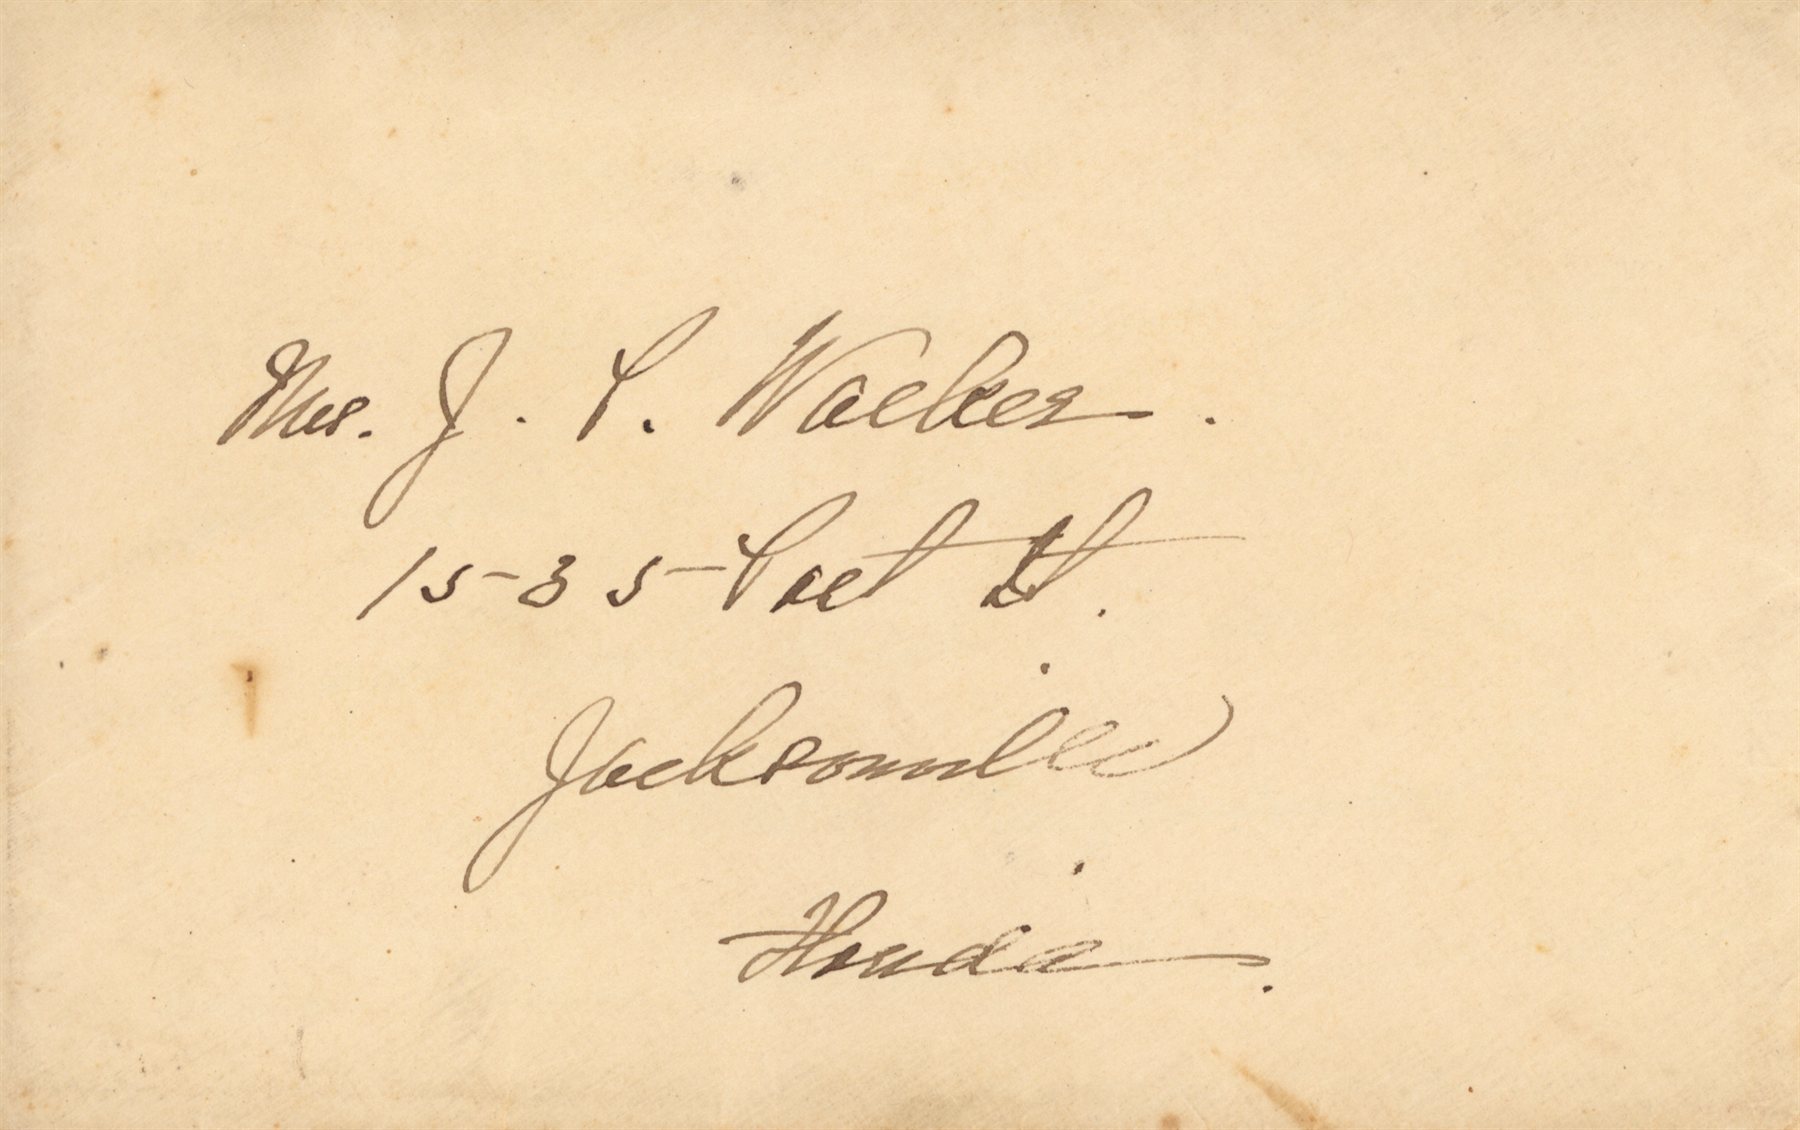 Mrs. J. P. Wacker.
1535 Post St.
Jacksonville
Florida.